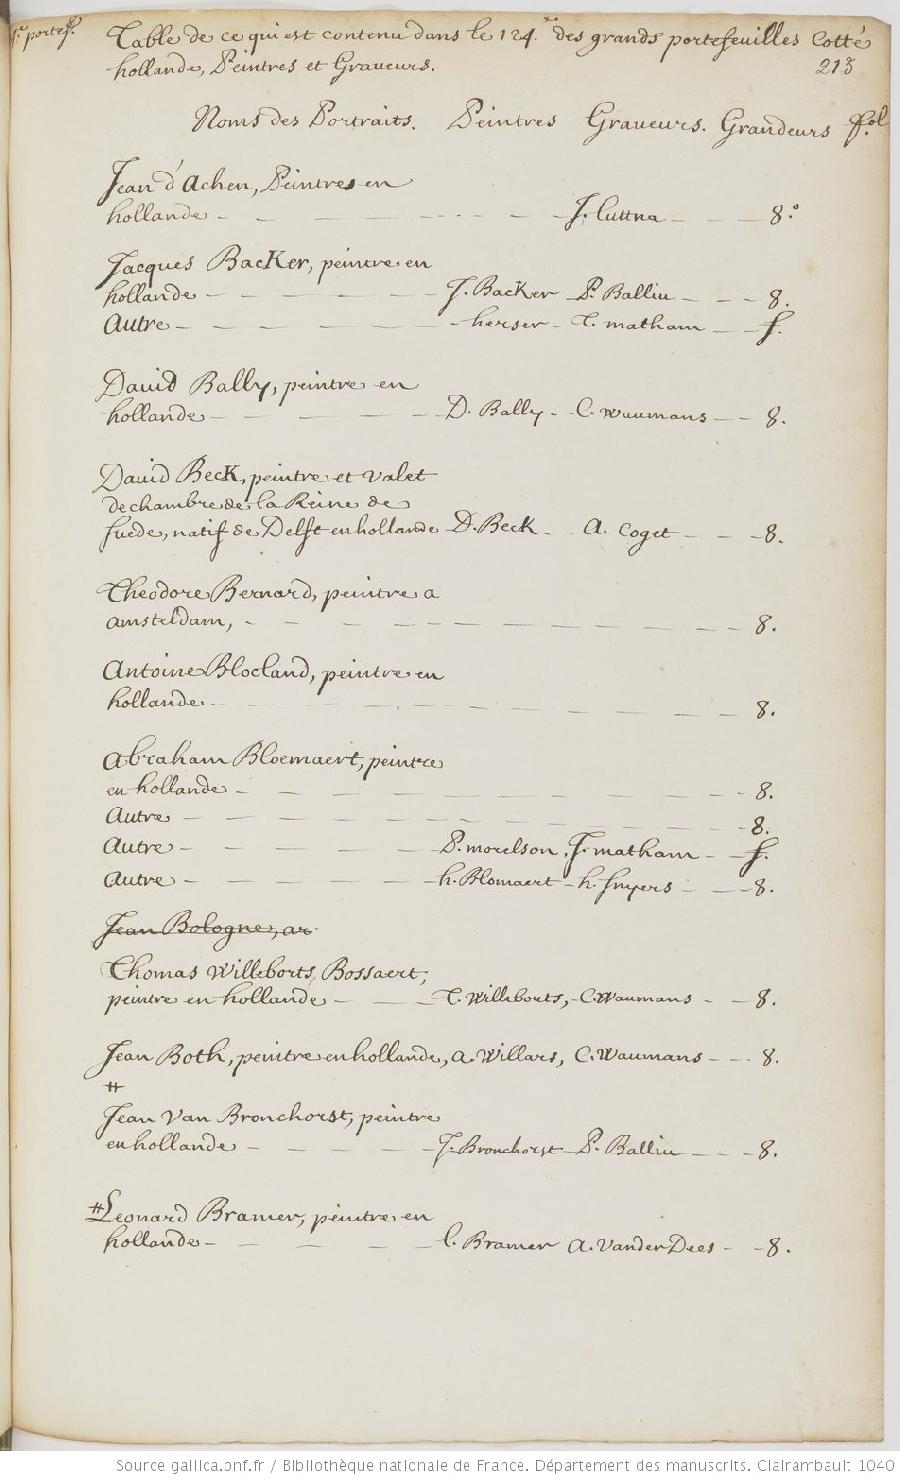 portef.
Table de ce qui est contenu dans le 124.e des grands portefeuilles Cotté
hollande, Peintres et Graveurs.
213
Noms des Portraits. Peintres Graveurs. Grandeurs fol.
Jean d'Achen, Peintres en
hollande - - - - - - J. luttna - - - 8.°
Jacques Backer, peintre en
hollande - - - - - J. Backer P. Balliu - - - 8.
Autre - - - - - - herser - T. matham - - f.
David Bally, peintre en
hollande - - - - - D. Bally - C. waumans - - 8.
David Beck, peintre et valet
de chambre de la Reine de
suede, natif de Delft en hollande D. Beck - A. Coget - - - 8.
Theodore Bernard, peintre a
amsteldam, - - - - - - - - - - - 8.
Antoine Blocland, peintre en
hollande - - - - - - - - - - - 8.
Abraham Bloemaert, peintre
en hollande - - - - - - - - - - 8.
Autre - - - - - - - - - - - - 8.
Autre - - - - - P. morelson, J. matham - - f.
Autre - - - - - h. Blomaert - h. snyers - - - 8.
Jean Bologne, ar
Thomas Willeborts, Bossaert,
peintre en hollande - - - T. Willeborts, - C. Waumans - - 8.
Jean Both, peintre en hollande, A. Willars, C. Waumans - - - 8.
#
Jean Van Bronchorst, peintre
en hollande - - - - - J. Bronchorst P. Balliu - - - 8.
# Leonard Bramer, peintre en
hollande - - - - - l. Bramer A. Vander Dees - - 8.
Source gallica.bnf.fr / Bibliothèque nationale de France. Département des manuscrits. Clairambault 1040